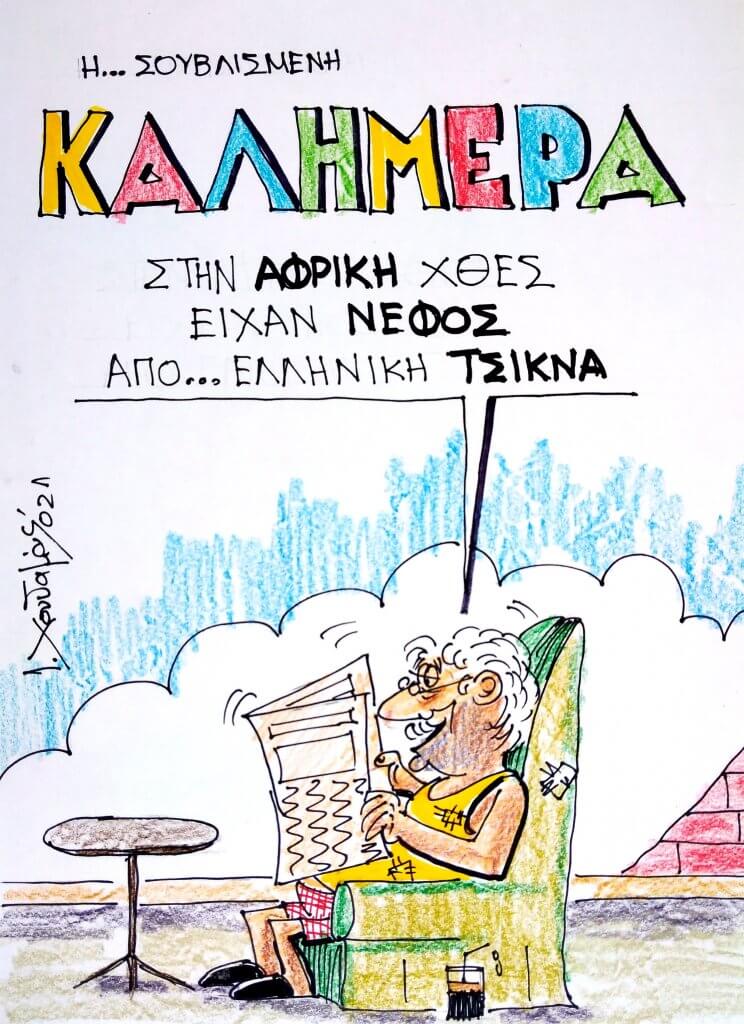 Η... ΣΟΥΒΛΙΣΜΕΝΗ
ΚΑΛΗΜΕΡΑ
ΣΤΗΝ ΑΦΡΙΚΗ ΧΘΕΣ
ΕΙΧΑΝ ΝΕΦΟΣ
ΑΠΟ... ΕΛΛΗΝΙΚΗ ΤΣΙΚΝΑ